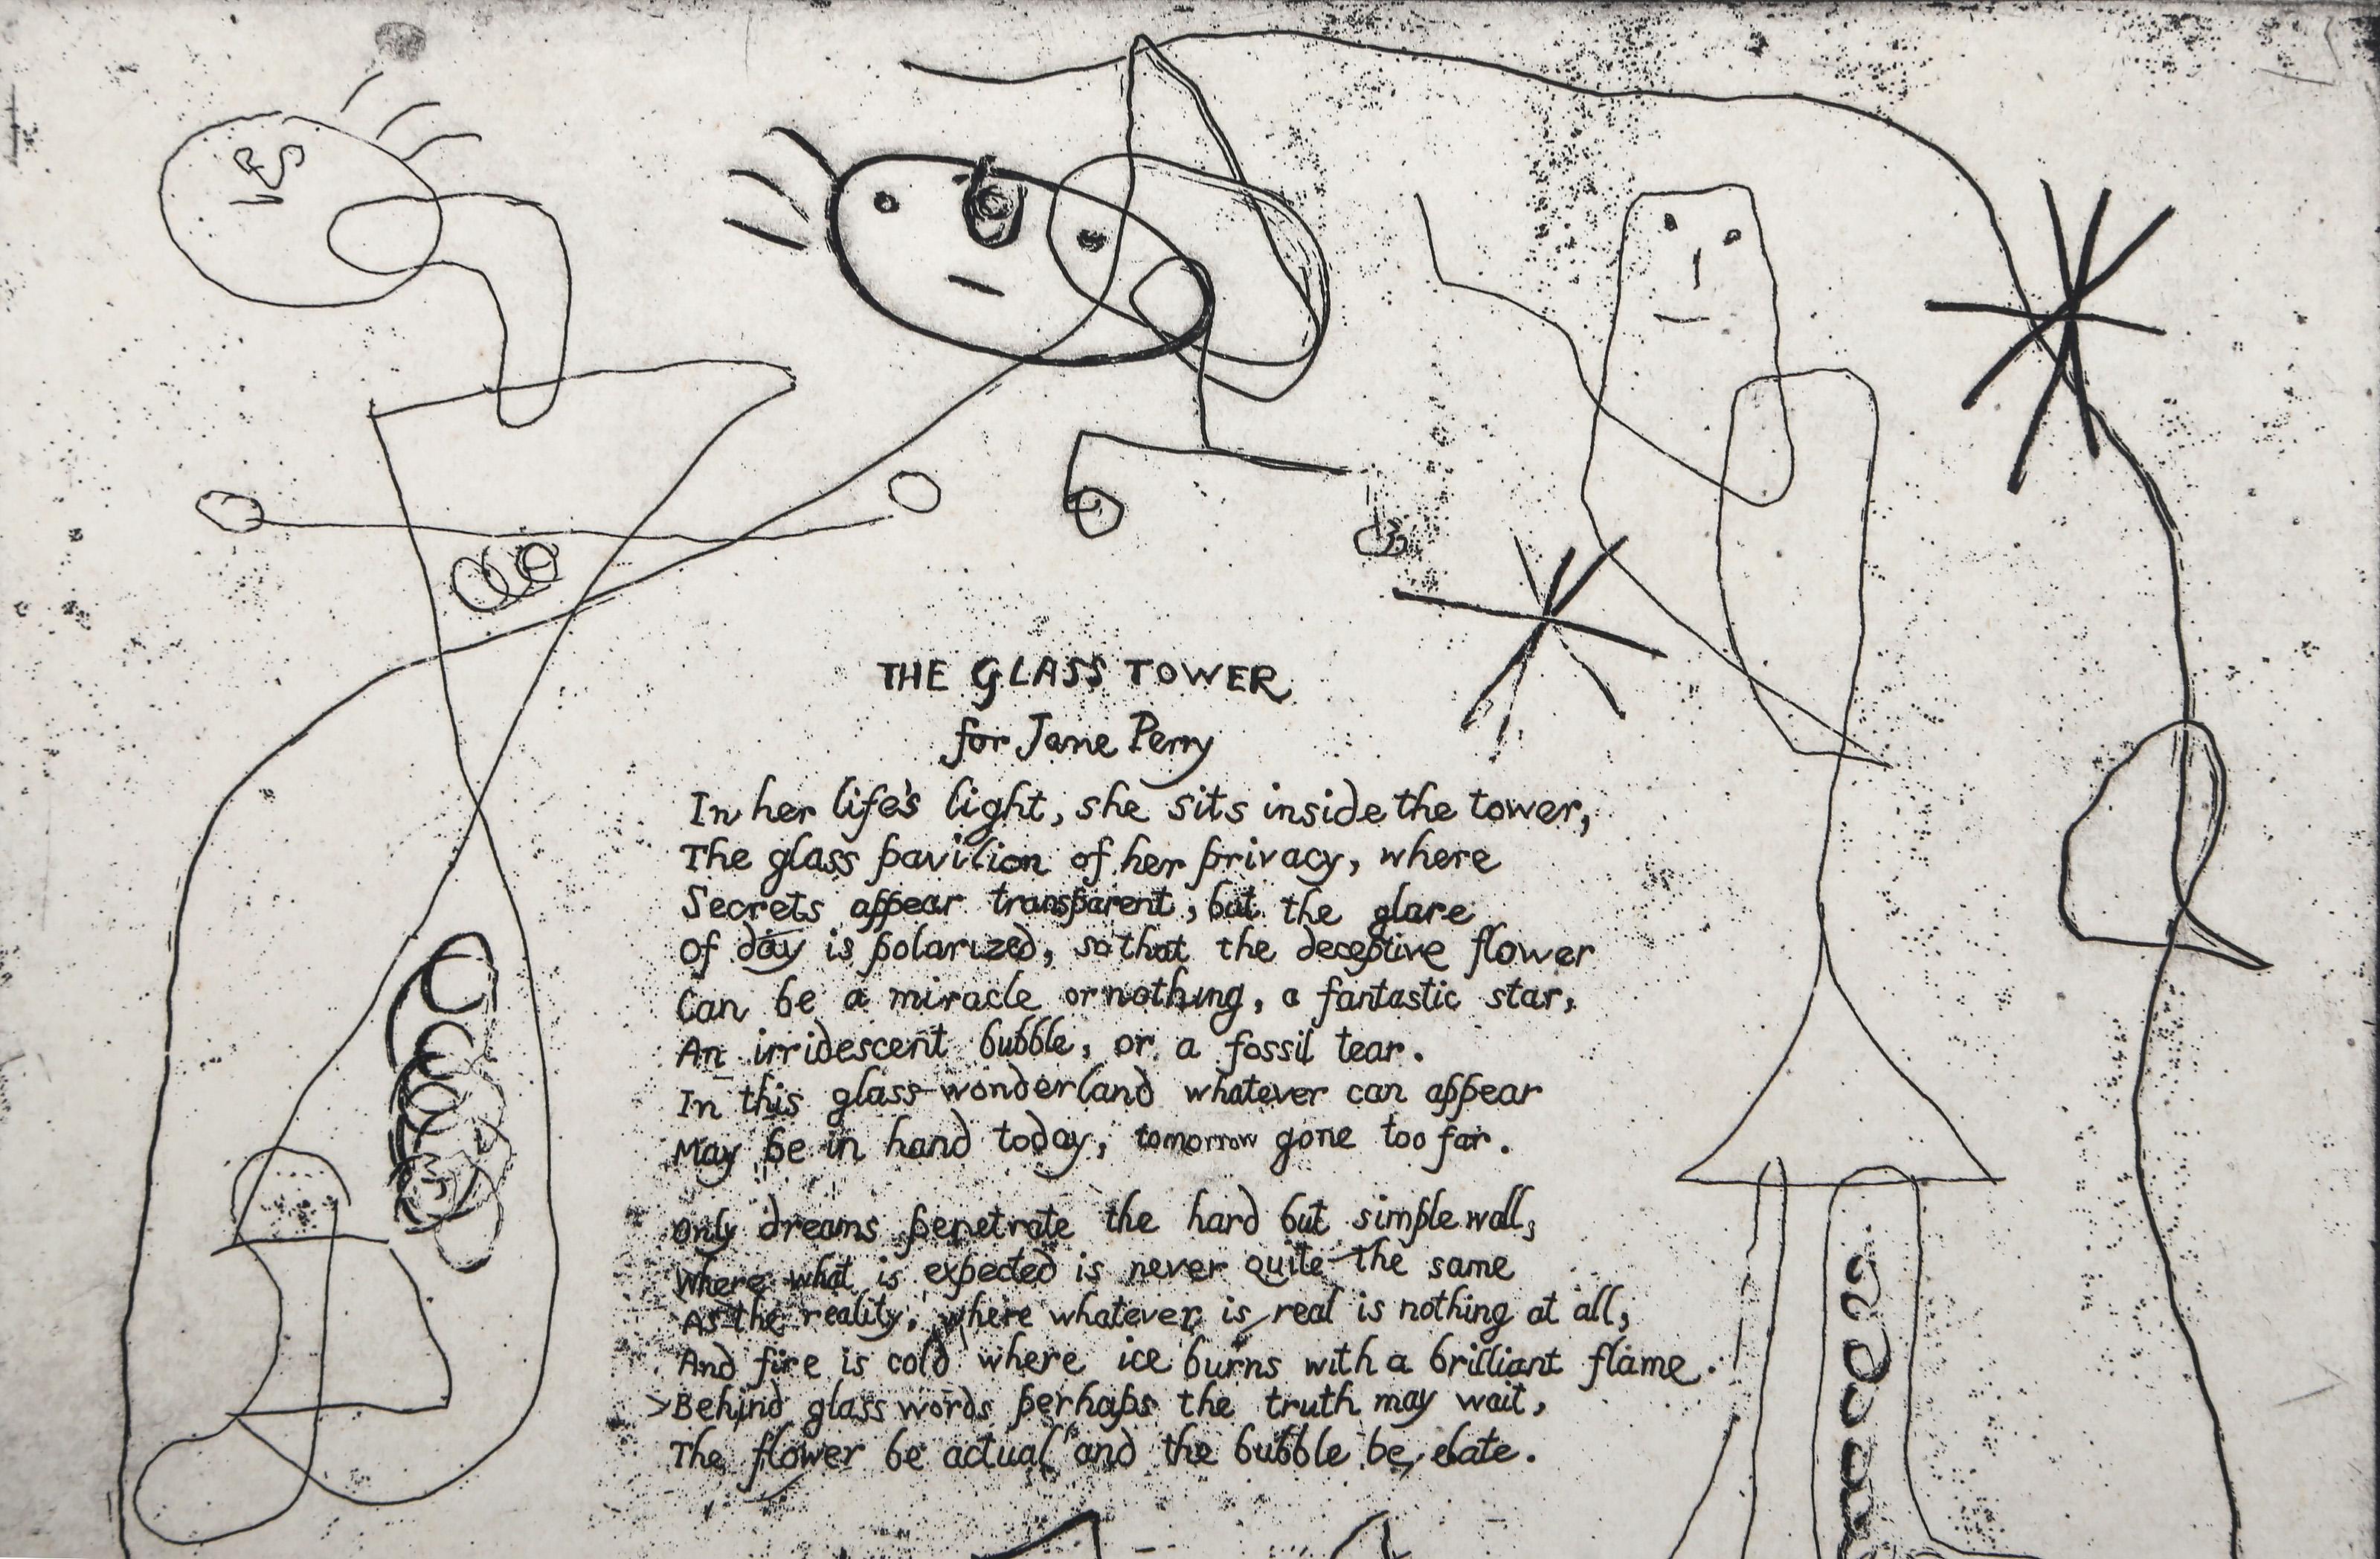 THE GLASS TOWER
for Jane Perry
In her life's light, she sits inside the tower,
The glass pavilion of her privacy, where
Secrets appear transparent, but the glare
Of day is polarized, so that the deceptive flower
Can be a miracle or nothing, a fantastic star,
An irridescent bubble, or a fossil tear.
In this glass wonderland whatever can appear
May be in hand today, tomorrow gone too far.
Only dreams penetrate the hard but simple wall,
Where what is expected is never quite the same
As the reality, where whatever is real is nothing at all,
And fire is cold where ice burns with a brilliant flame.
>Behind glass words perhaps the truth may wait,
The flower be actual and the bubble be elate.